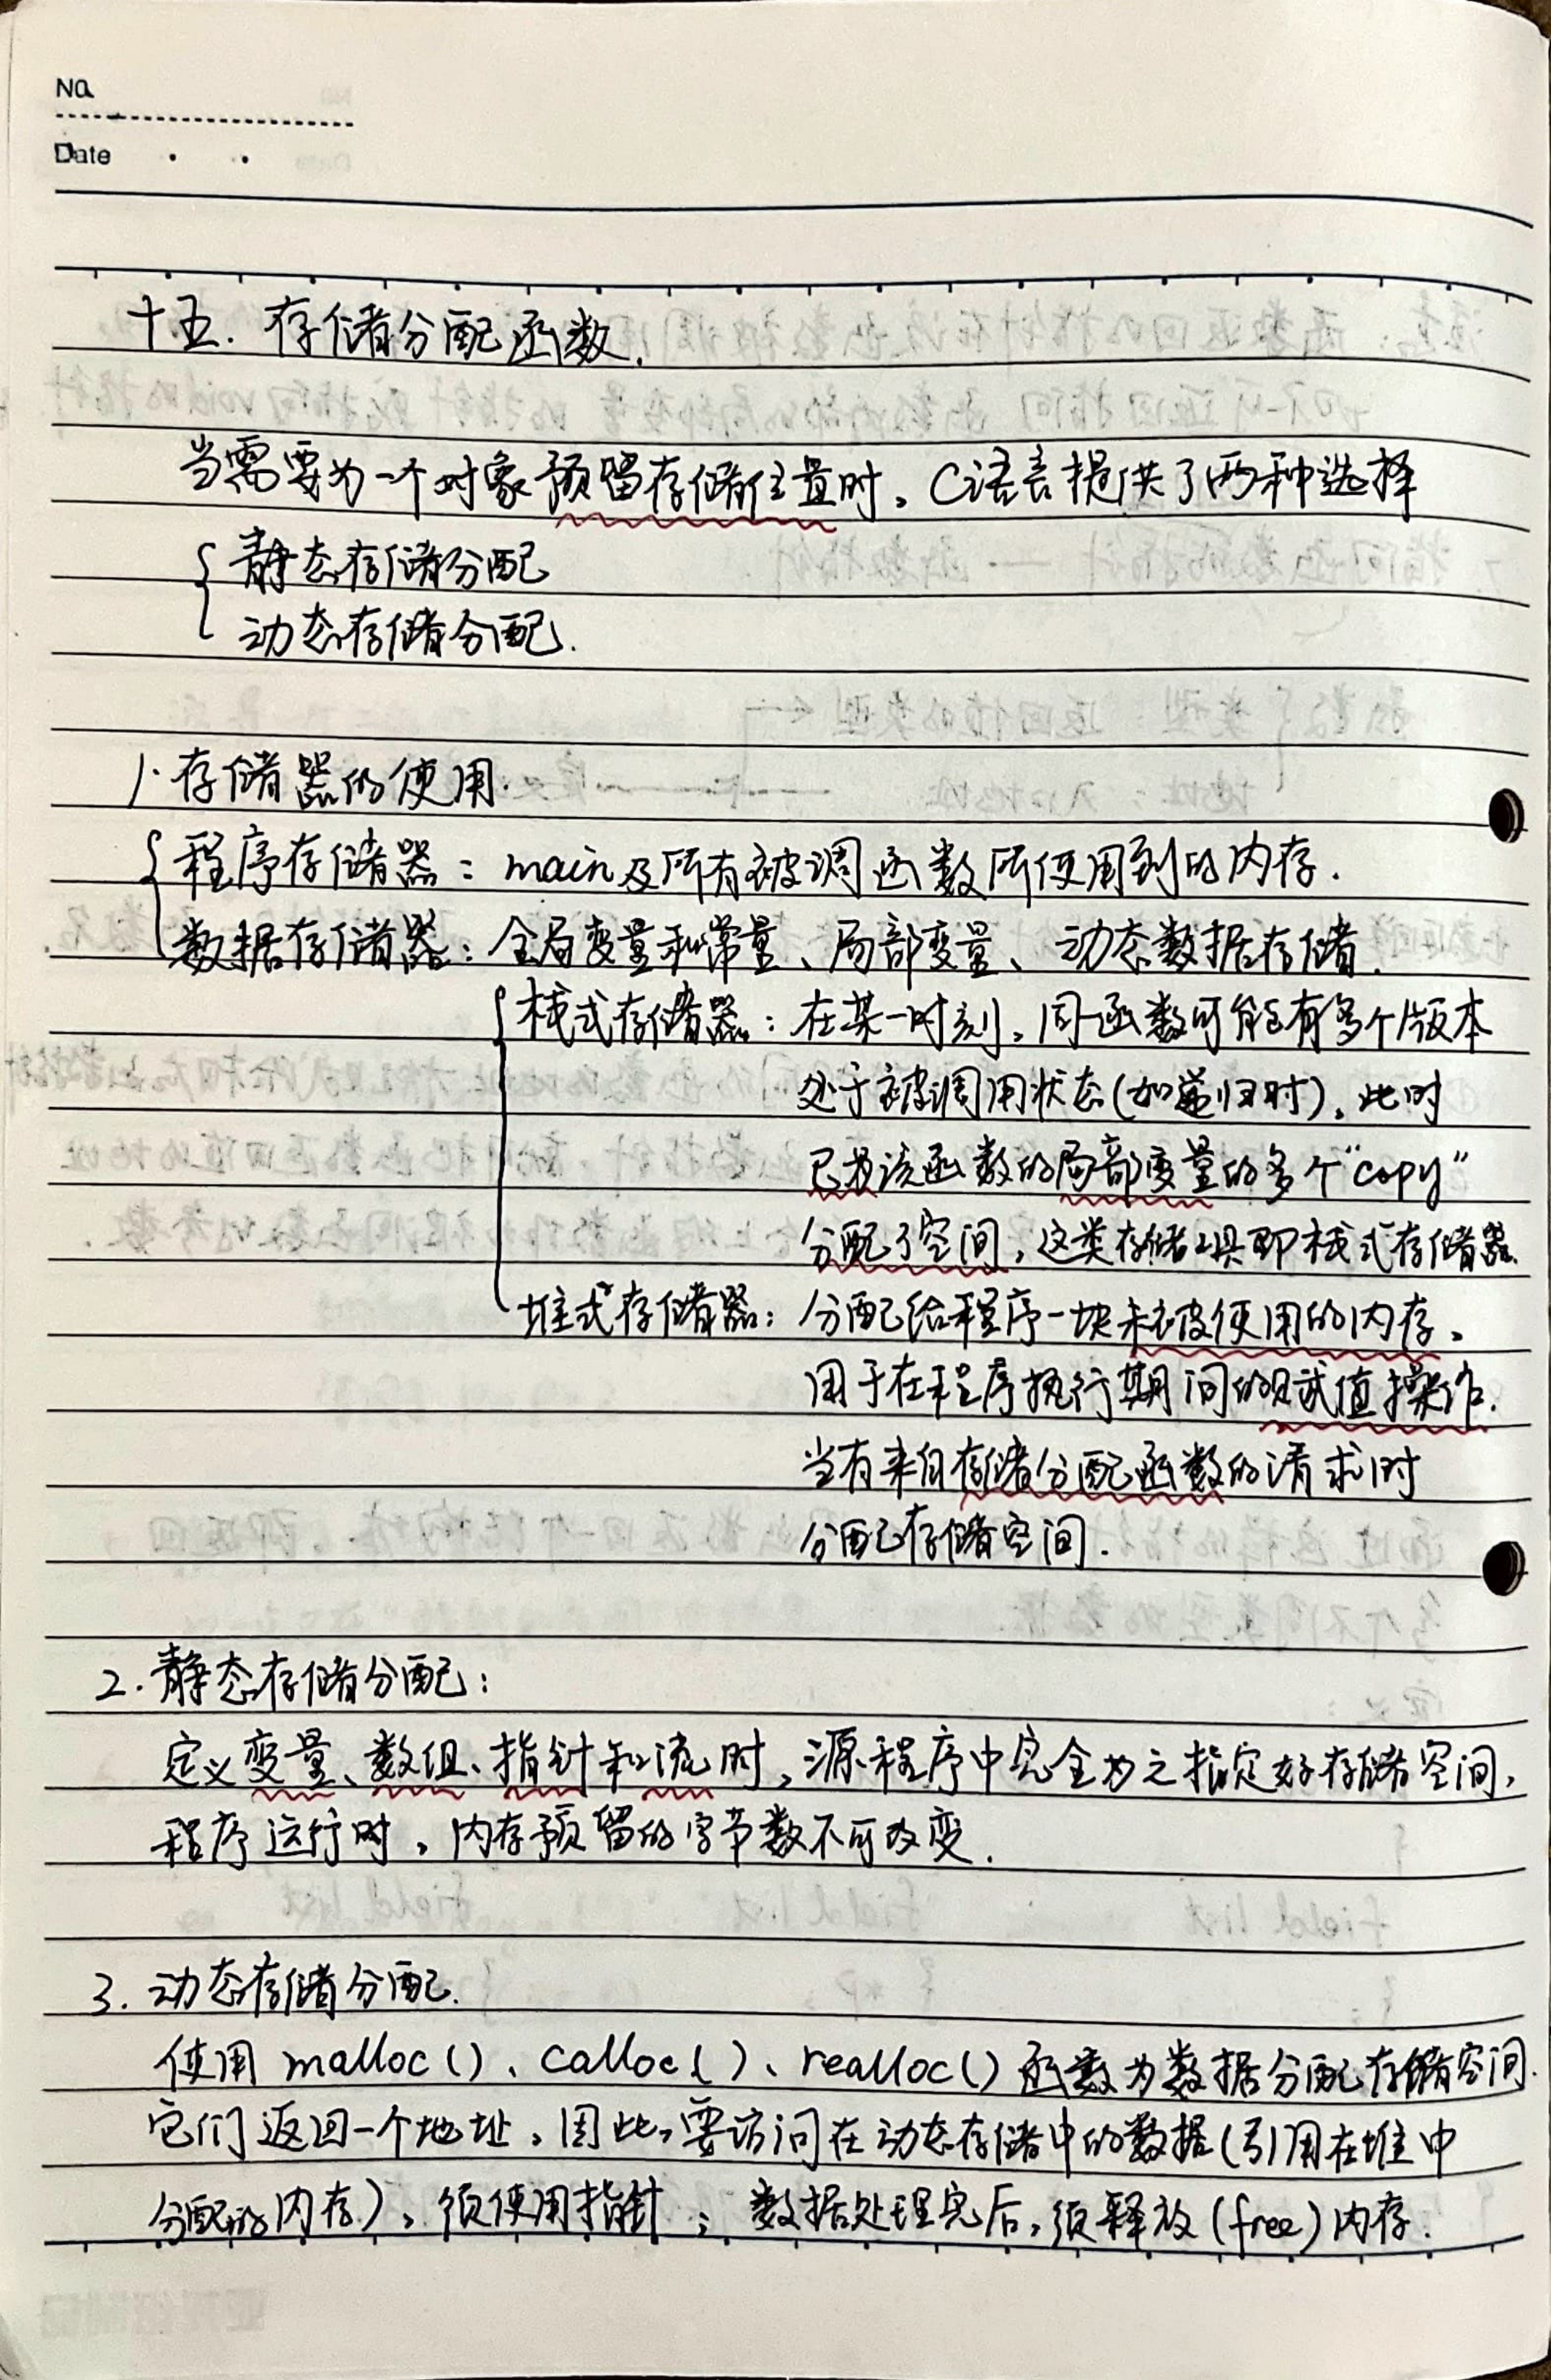 No.
Date
十五. 存储分配函数.
当需要为一个对象预留存储位置时，C语言提供了两种选择
静态存储分配
动态存储分配.
1. 存储器的使用.
程序存储器：main及所有被调函数所使用到的内存.
数据存储器：全局变量和常量、局部变量、动态数据存储.
栈式存储器：在某一时刻，同一函数可能有多个版本
处于被调用状态(如递归时)，此时
已为该函数的局部变量的多个“copy”
分配了空间，这类存储工具即栈式存储器.
堆式存储器：分配给程序一块未被使用的内存，
用于在程序执行期间的赋值操作.
当有来自存储分配函数的请求时
分配存储空间.
2. 静态存储分配：
定义变量、数组、指针和流时，源程序中完全为之指定好存储空间，
程序运行时，内存预留的字节数不可改变.
3. 动态存储分配.
使用 malloc()、calloc()、realloc() 函数为数据分配存储空间.
它们返回一个地址，因此，要访问在动态存储中的数据(引用在堆中
分配的内存)，须使用指针；数据处理完后，须释放(free)内存.